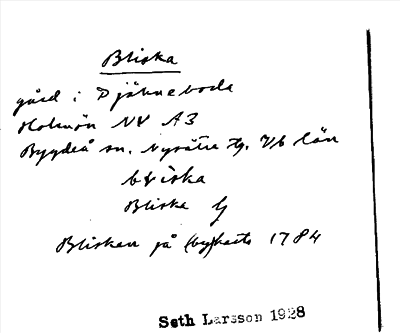 Bliska
gård i Djäkneboda
Holmön NV A3
Bygdeå sn. Nysätra tg. Vb län
bliska
Bliska G
Blisken på (by)karta 1784
Seth Larsson 1928